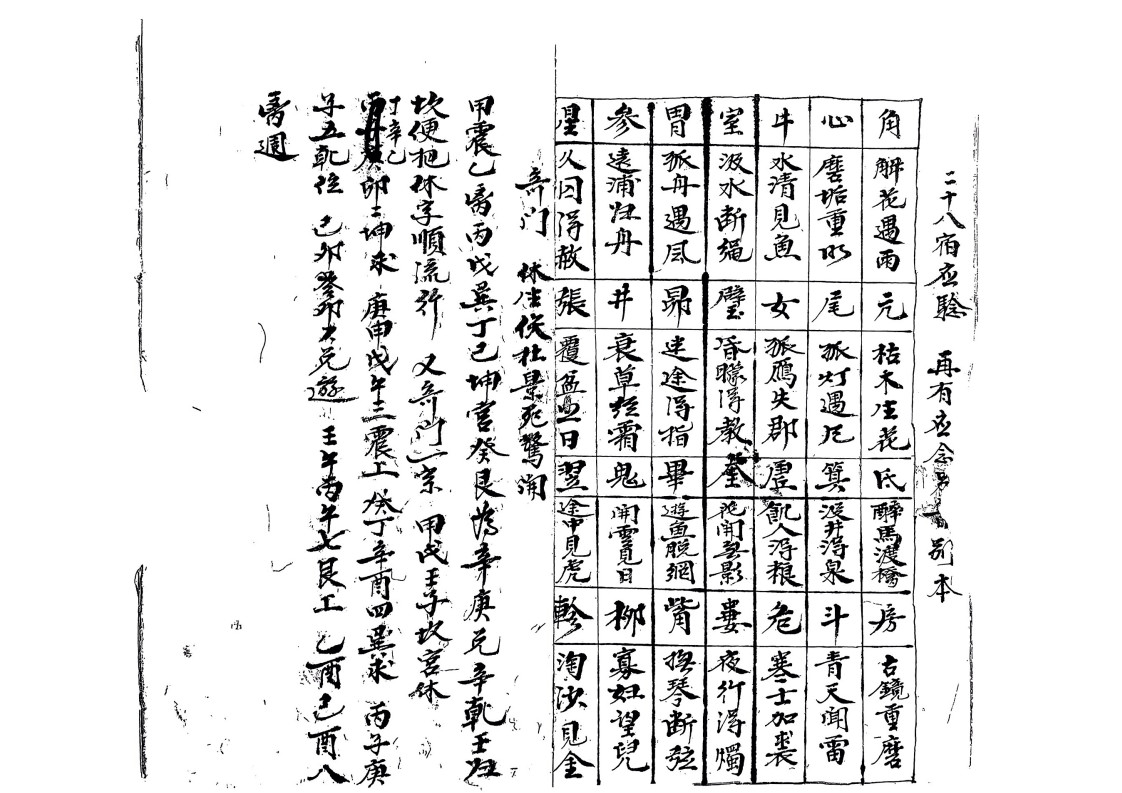 二十八宿应驗 再有应念 別本
角 解花遇雨 亢 枯木生花 氐 醉馬渡橋 房 古鏡重磨
心 磨垢重明 尾 孤灯遇風 箕 浚井得泉 斗 青天闻雷
牛 水清見魚 女 孤鴈失郡 虛 飢人得粮 危 寒士加裘
室 汲水断繩 壁 昏曚得教 奎 花開無影 婁 夜行得燭
胃 孤舟遇风 昴 迷途得指 畢 遊魚脱網 觜 撫琴断弦
參 遠浦归舟 井 衰草经霜 鬼 開雲見日 柳 寡妇望兒
星 久囚得赦 張 覆盆 日 翌 途中見虎 軫 淘沙見金
奇门 休生傷杜景死驚開
甲震乙离丙戊巽丁己坤宮癸艮 辛庚兑辛乾壬归
坎便把休字順流行 又奇门一宗 甲戊壬子坎宮休
丁辛乙卯二坤求 庚申戊午三震工 癸丁辛酉四巽求 丙子庚
子五乹位 己卯癸卯六兑遊 壬午丙午七艮工 乙酉己酉八
离週